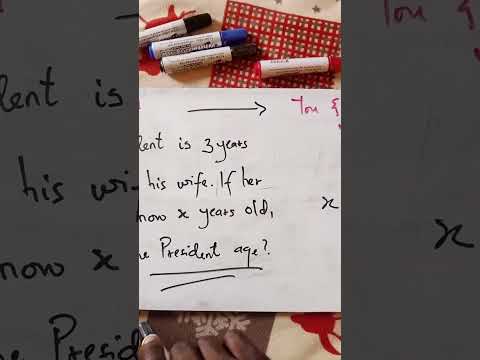 You {
dent is 3 years
his wife. If her
now x years old, x
President age?